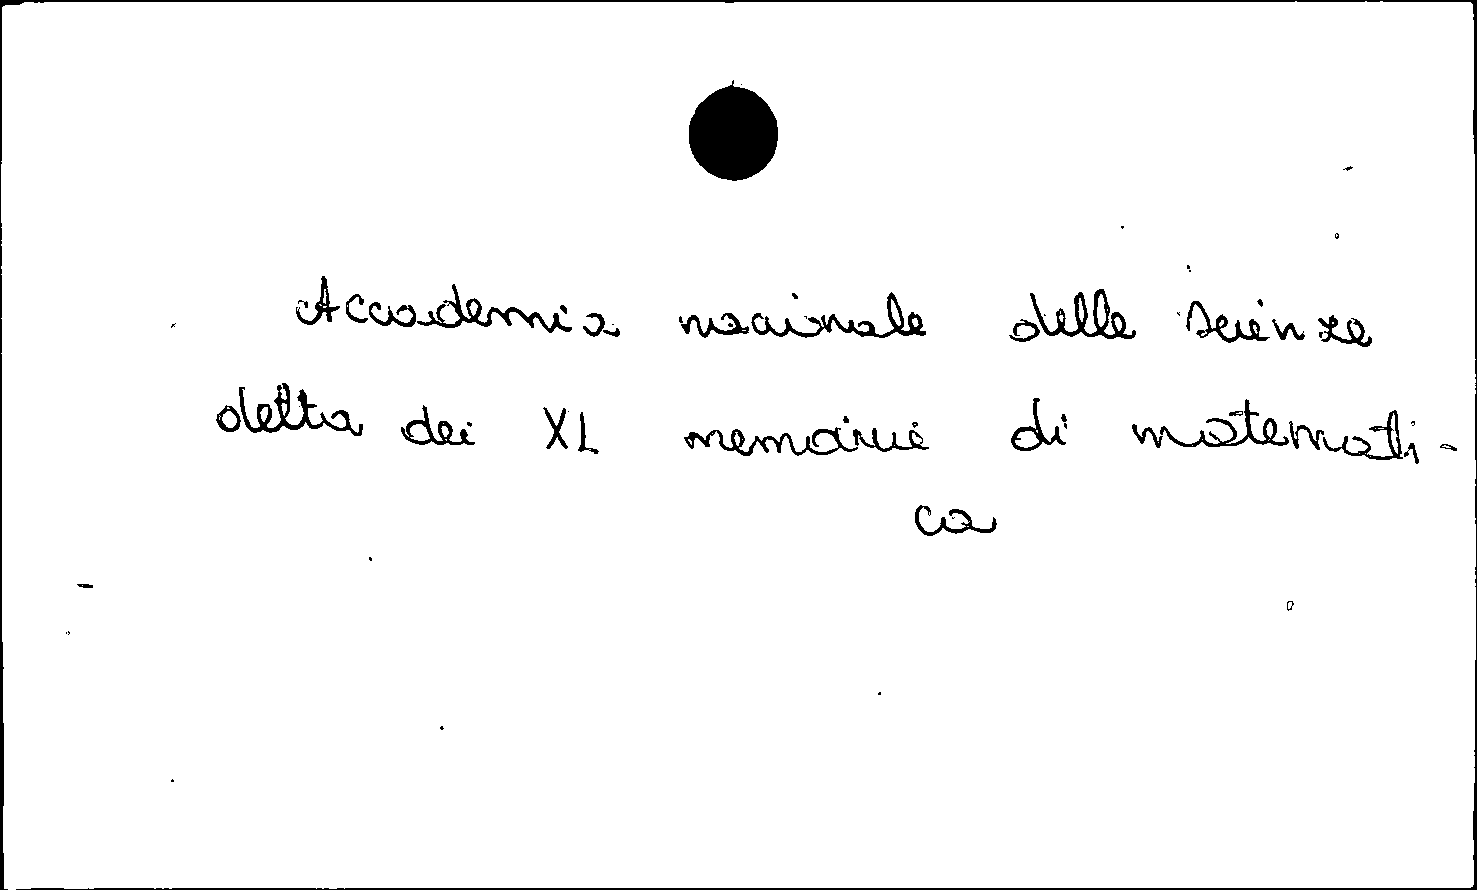 Accademia nacionale delle scienze
detta dei XL memorie di matemati-
ca